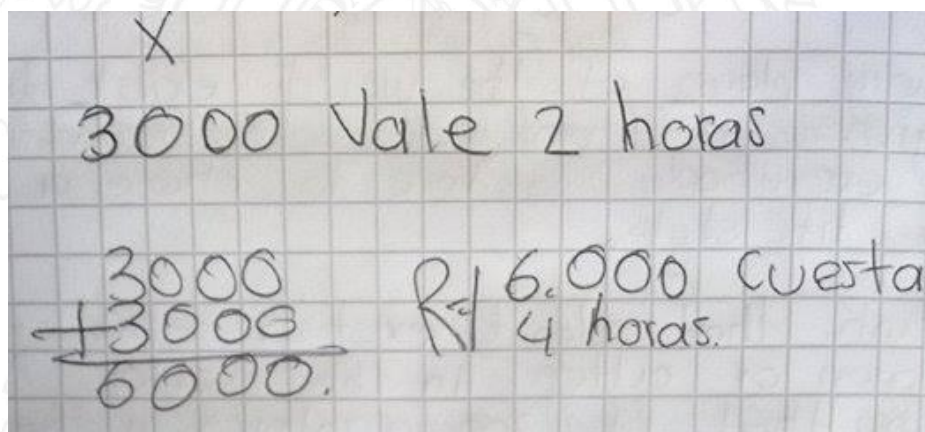 X
3000 Vale 2 horas
3000
+3000
6000.
R/ 6.000 cuesta
4 horas.